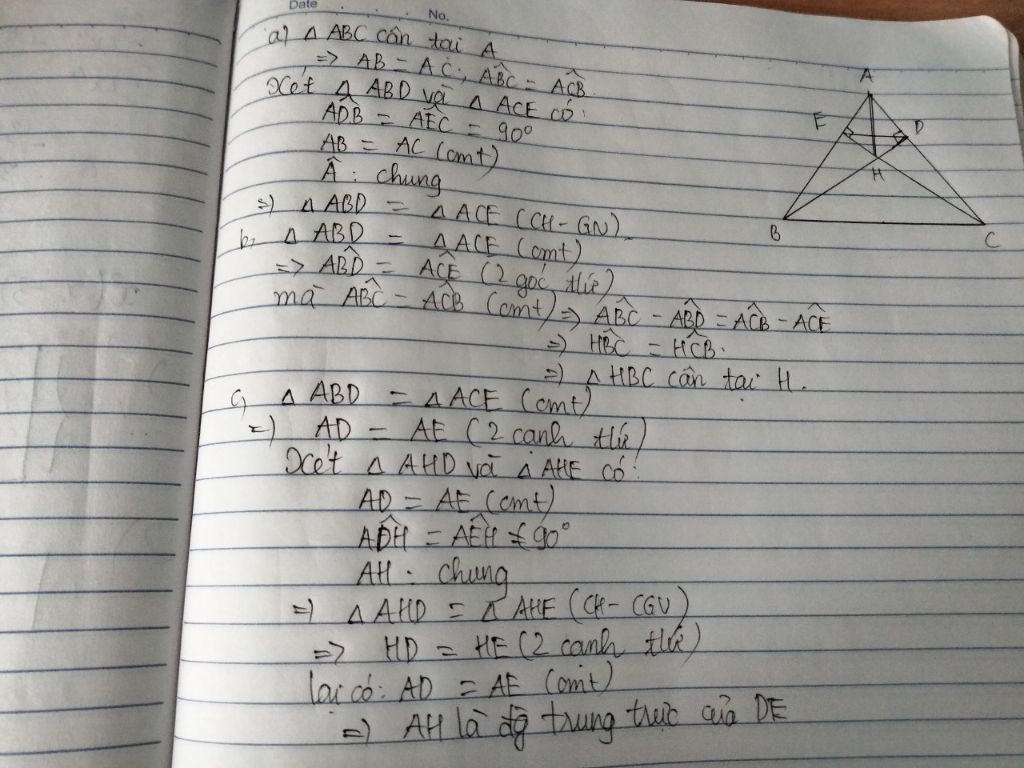 Date No.
a) △ ABC cân tại A
=> AB = AC ; ABĈ = AĈB.
Xét △ ABD và △ ACE có:
AD̂B = AÊC = 90°
AB = AC (cmt)
Â : chung
=) △ ABD = △ ACE (CH - GN)
b, △ ABD = △ ACE (cmt)
=> AB̂D = AĈE (2 góc t/ứ)
mà AB̂C = AĈB (cmt) => AB̂C - AB̂D = AĈB - AĈE
=) HB̂C = HĈB.
=) △ HBC cân tại H.
c, △ ABD = △ ACE (cmt)
=) AD = AE (2 cạnh t/ứ)
Xét △ AHD và △ AHE có:
AD = AE (cmt)
AD̂H = AÊH = 90°
AH : chung
=) △ AHD = △ AHE (CH - CGV)
=> HD = HE (2 cạnh t/ứ)
lại có: AD = AE (cmt)
=) AH là đg trung trực của DE
A
E D
H
B C